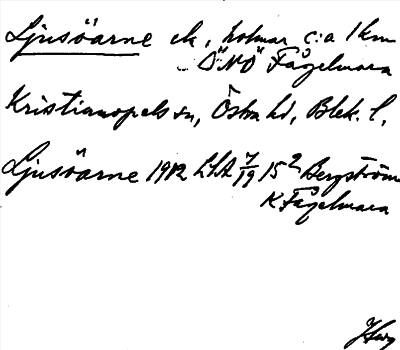 Ljusöarne ek, holmar c:a 1 km
ÖNO Fågelmara
Kristianopels sn, Östra hd, Blek. l.
Ljusöarne 1912 LSA 7/19 15² Bergström
K Fågelmara